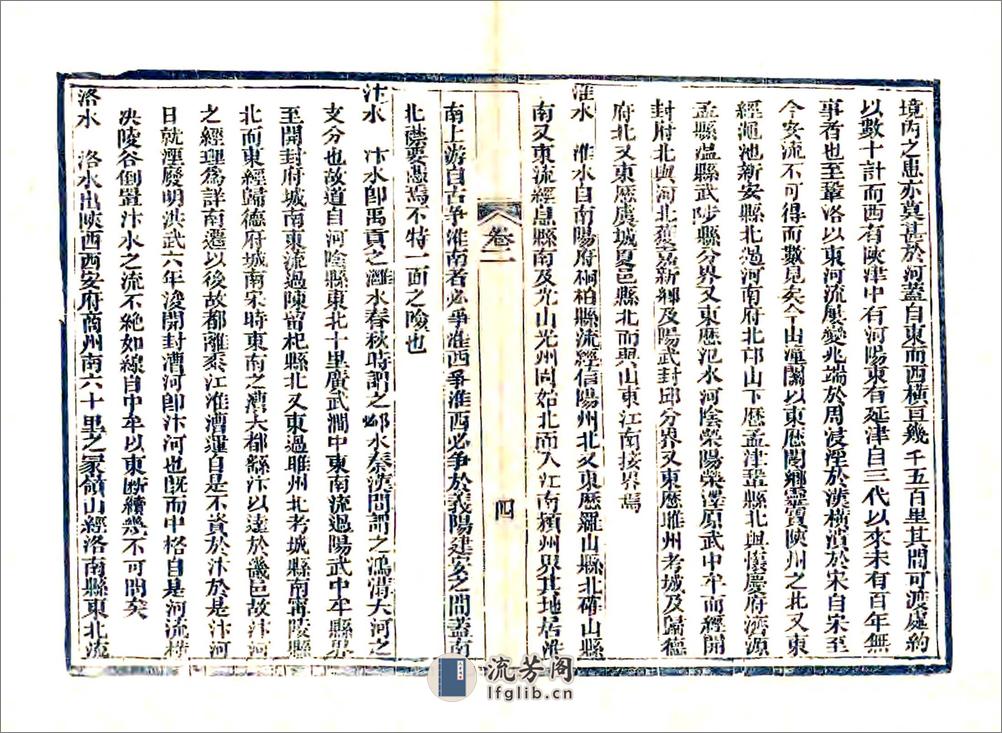 境內之患亦莫甚於河蓋自東而西橫亘幾千五百里其間可渡處約
以數十計而西有陝津中有河陽東有延津自三代以來未有百年無
事者也至鞏洛以東河流屢變兆端於周浸淫於漢橫潰於宋自宋至
今安流不可得而數見矣今由潼關以東歷閿鄉靈寶陝州之北又東
經澠池新安縣北過河南府北邙山下歷孟津鞏縣北與懷慶府濟源
孟縣溫縣武陟縣分界又東歷汜水河陰滎陽滎澤原武中牟而經開
封府北與河北舊新鄉及陽武封邱分界又東歷睢州考城及歸德
府北又東歷虞城夏邑縣北而與山東江南接界焉
淮水 淮水自南陽府桐柏縣流經信陽州北又東歷羅山縣北確山縣
南又東流經息縣南及光山光州固始北而入江南潁州界其地居淮
南上游自古爭淮南者必爭淮西爭淮西必爭於義陽建安之間蓋南
北襟要慿焉不特一面之險也
汴水 汴水卽禹貢之灉水春秋時謂之邲水秦漢間謂之鴻溝大河之
支分也故道自河陰縣東北十里廣武澗中東南流過陽武中牟縣界
至開封府城南東流過陳留杞縣北又東過睢州北考城縣南寧陵縣
北而東經歸德府城南宋時東南之漕大都繇汴以達於畿邑故汴河
之經理爲詳南遷以後故都離黍江淮漕運自是不資於汴於是汴河
日就湮廢明洪武六年浚開封漕河卽汴河也旣而中格自是河流橫
決陵谷倒置汴水之流不絕如線自中牟以東斷續幾不可問矣
洛水 洛水出陝西西安府商州南六十里之冢領山經洛南縣東北流
卷二
四
流芳阁
lfglib.cn